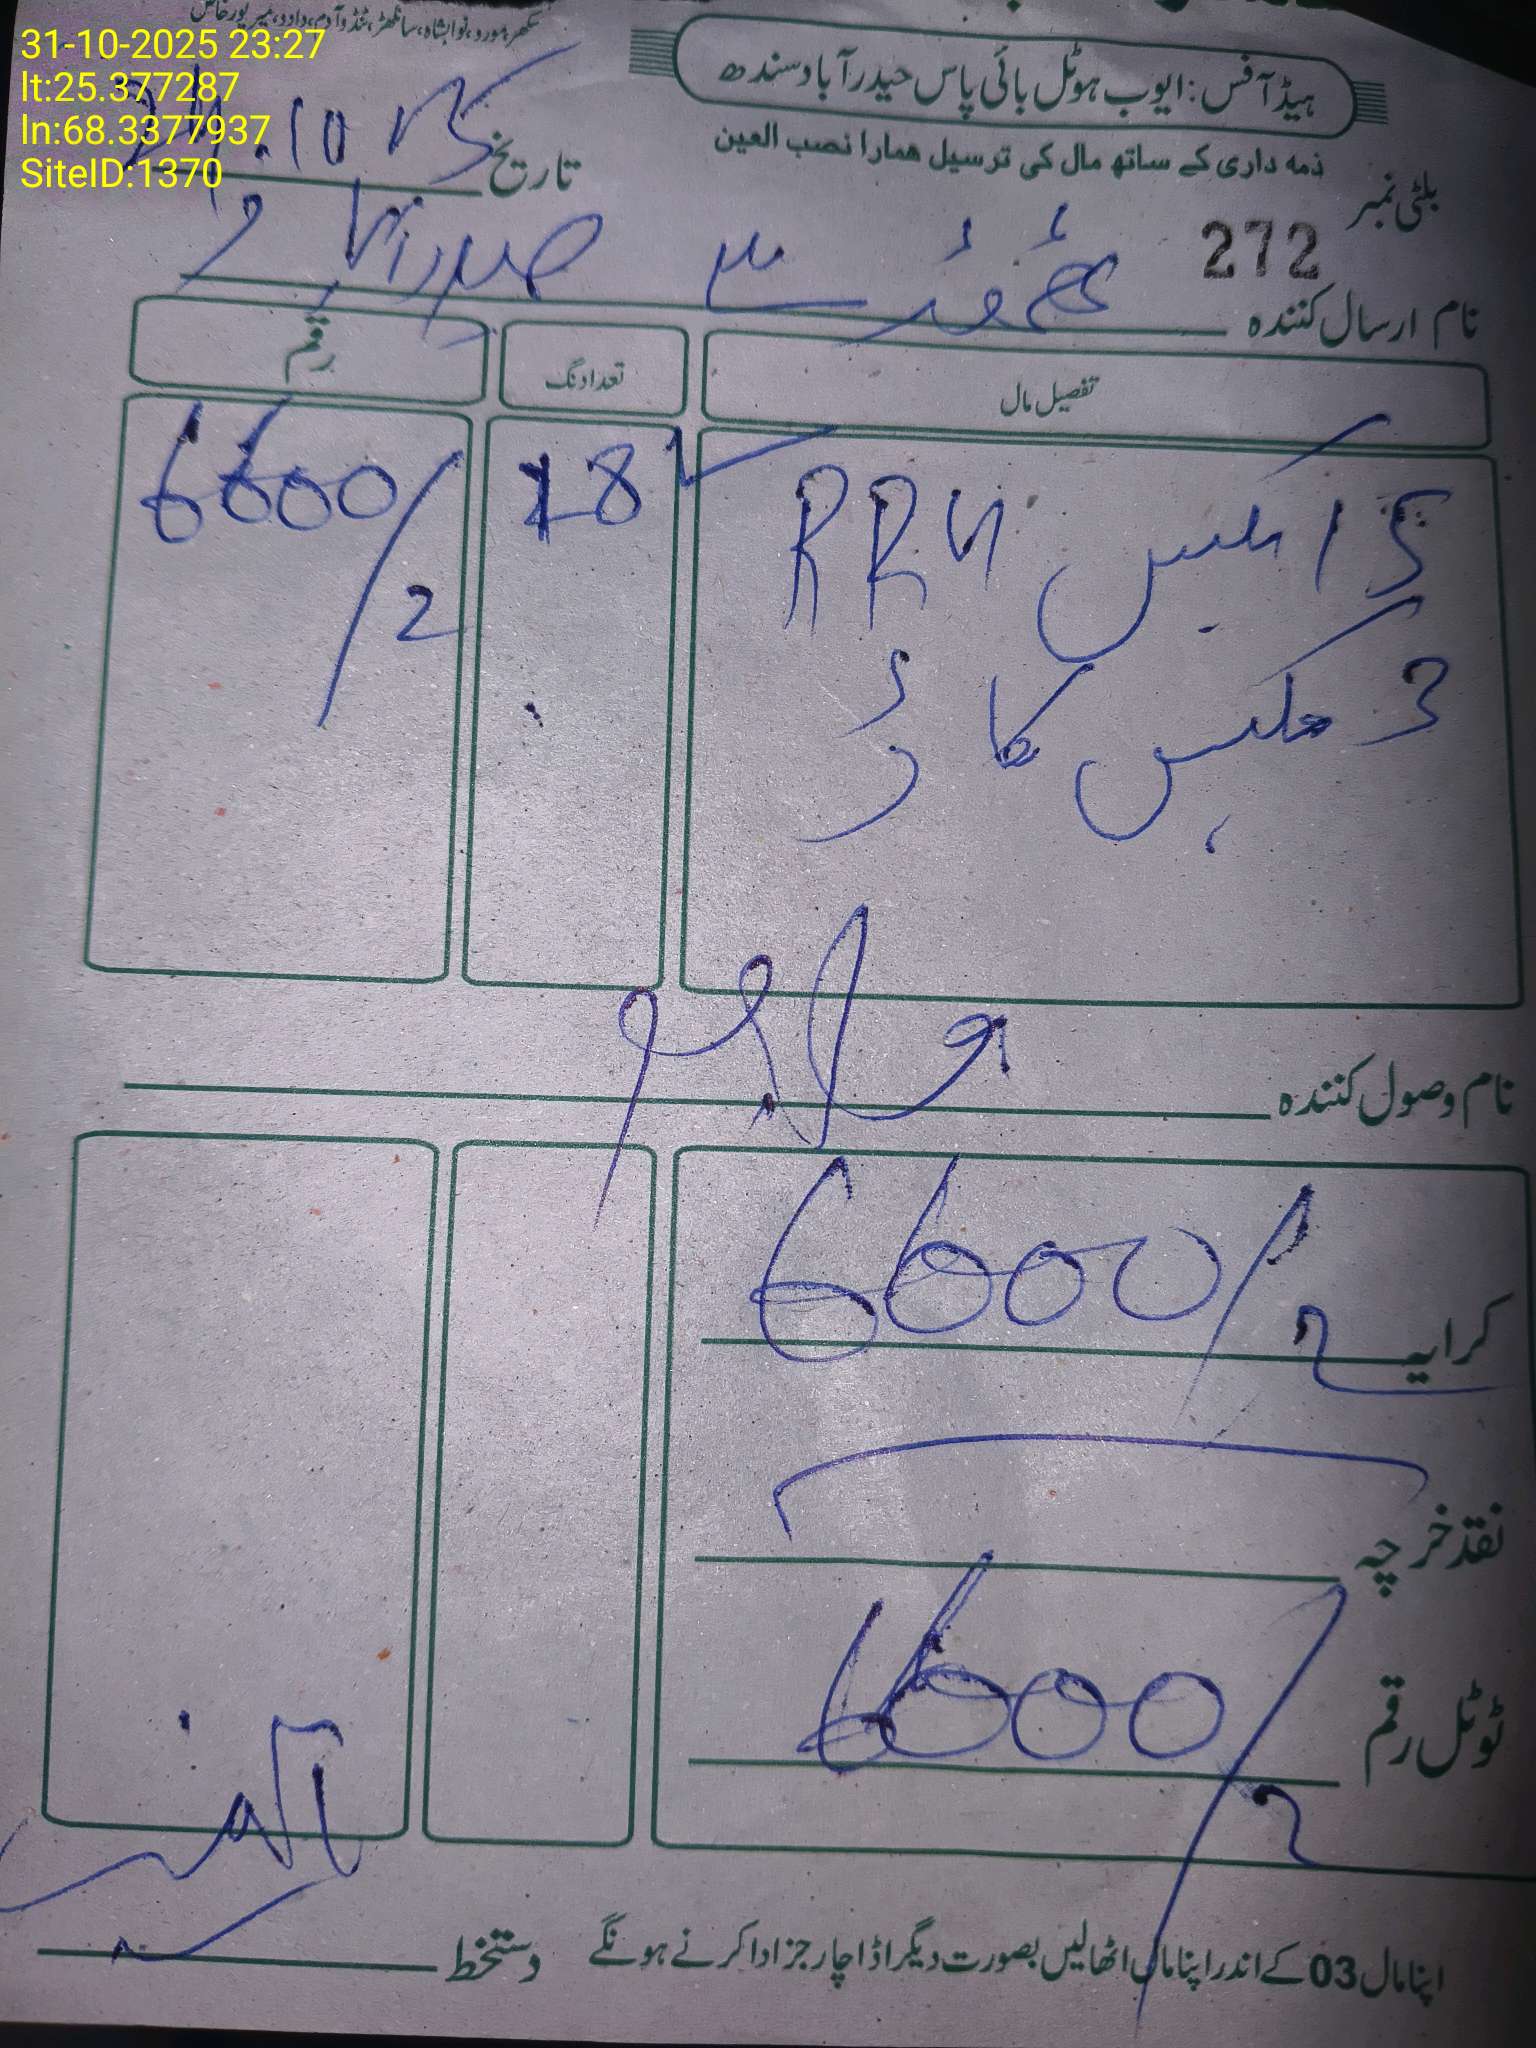 سکھر، مورو، نوابشاہ، سانگھڑ، ٹنڈوآدم، دادو، میرپورخاص
31-10-2025 23:27
lt:25.377287
ln:68.3377937
SiteID:1370
ہیڈ آفس: ایوب ہوٹل بائی پاس حیدرآباد سندھ
ذمہ داری کے ساتھ مال کی ترسیل ہمارا نصب العین
تاریخ
بلٹی نمبر
272
نام ارسال کنندہ سے حیدرآباد
تفصیل مال تعداد نگ رقم
15 بکس RRU 18 6600/2
3 بکس کارڈ
نام وصول کنندہ
کرایہ 6600/2
نقد خرچہ
ٹوٹل رقم 6600/2
اپنا مال 03 کے اندر اپنا مال اٹھالیں بصورت دیگر اڈا چارجز ادا کرنے ہونگے دستخط